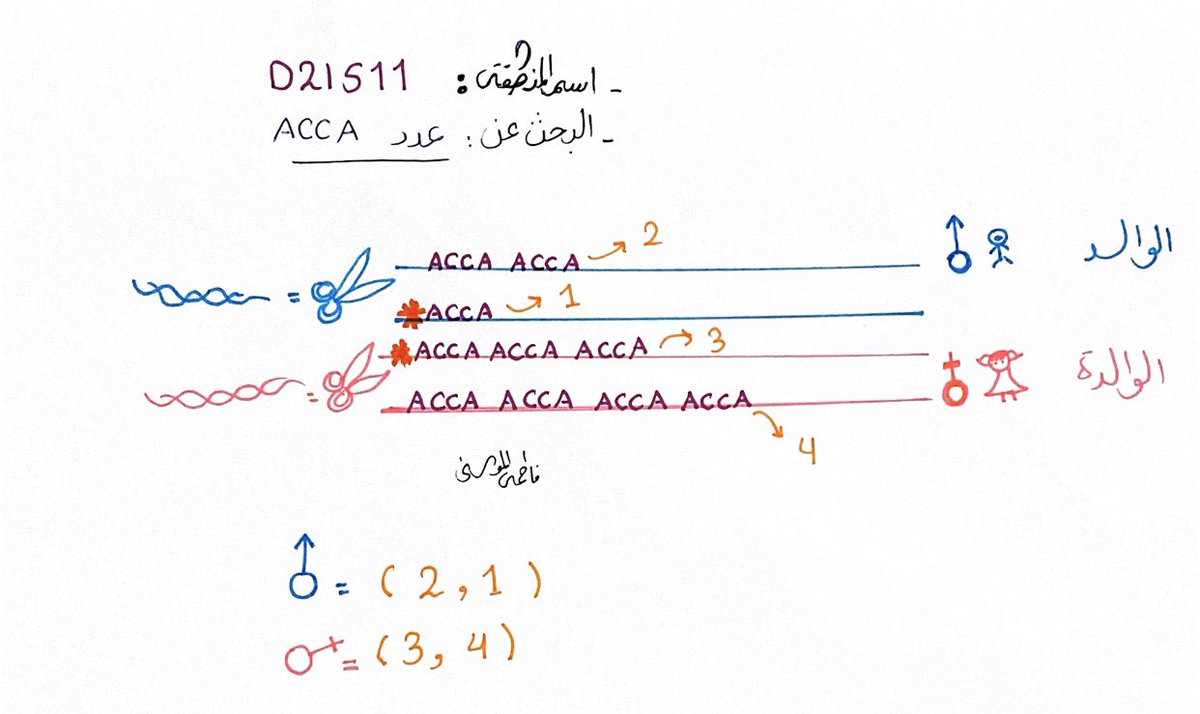 - اسم المنطقة : D21S11
- البحث عن : عدد ACCA
ACCA ACCA → 2
الوالد
ACCA → 1
ACCA ACCA ACCA → 3
الوالدة
= ACCA ACCA ACCA ACCA
4
= ( 2 , 1 )
= ( 3 , 4 )